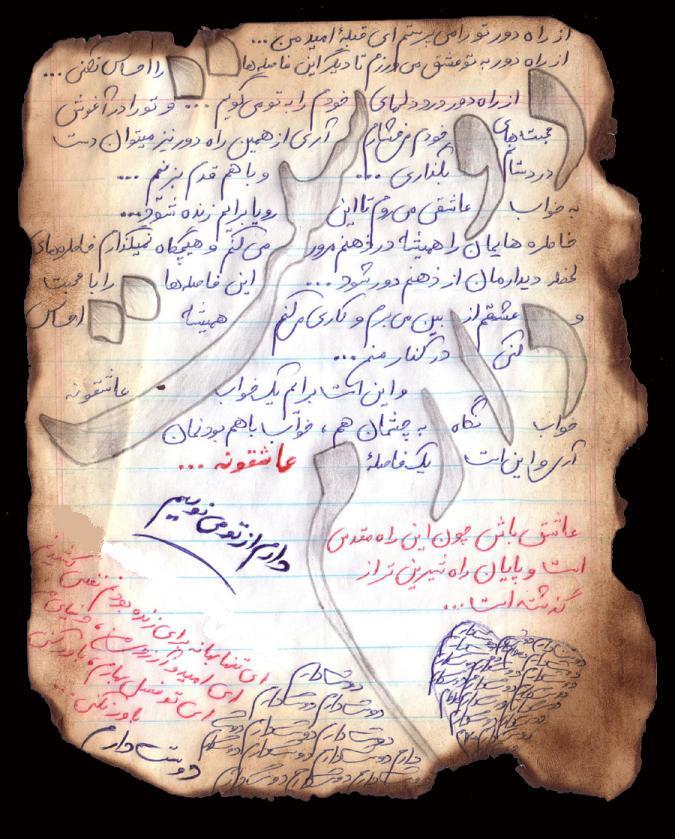 از راه دور تو را می پرستم ای قبلهٔ امید من ...
از راه دور به تو عشق می ورزم تا دیگر این فاصله ها را احساس نکنی ...
از راه دور درد دلهای خودم را به تو می گویم ... و تو را در آغوش
محبتهای خودم می فشارم آری از همین راه دور نیز میتوان دست
در دستانم بگذاری ... و با هم قدم بزنیم ...
به خواب عاشقی می روم تا این رویا برایم زنده شود...
خاطره هایمان را همیشه در ذهنم مرور می کنم و هیچگاه نمیگذارم خاطره های
لحظه دیدارمان از ذهنم دور شود ... این فاصله ها را با محبت
و عشقم از بین می برم و کاری می کنم همیشه احساس
کنی در کنار منم ...
و این است برایم یک خواب عاشقونه
خواب نگاه به چشمان هم ، خواب با هم بودنمان
آری و این است یک فاصلهٔ عاشقونه ...
دارم از تو می نویسم
عاشق باش چون این راه مقدس
است و پایان راه شیرین تر از
گذشته است ...
ای تنها بهانه برای زنده بودنم نفس کشیدنم
ای امید و آرزوی من ، دنیای من
ای تو فصل بهارم ، باور کنی
باور نکنی ...
دوستت دارم
دوستت دارم
دوستت دارم دوستت دارم